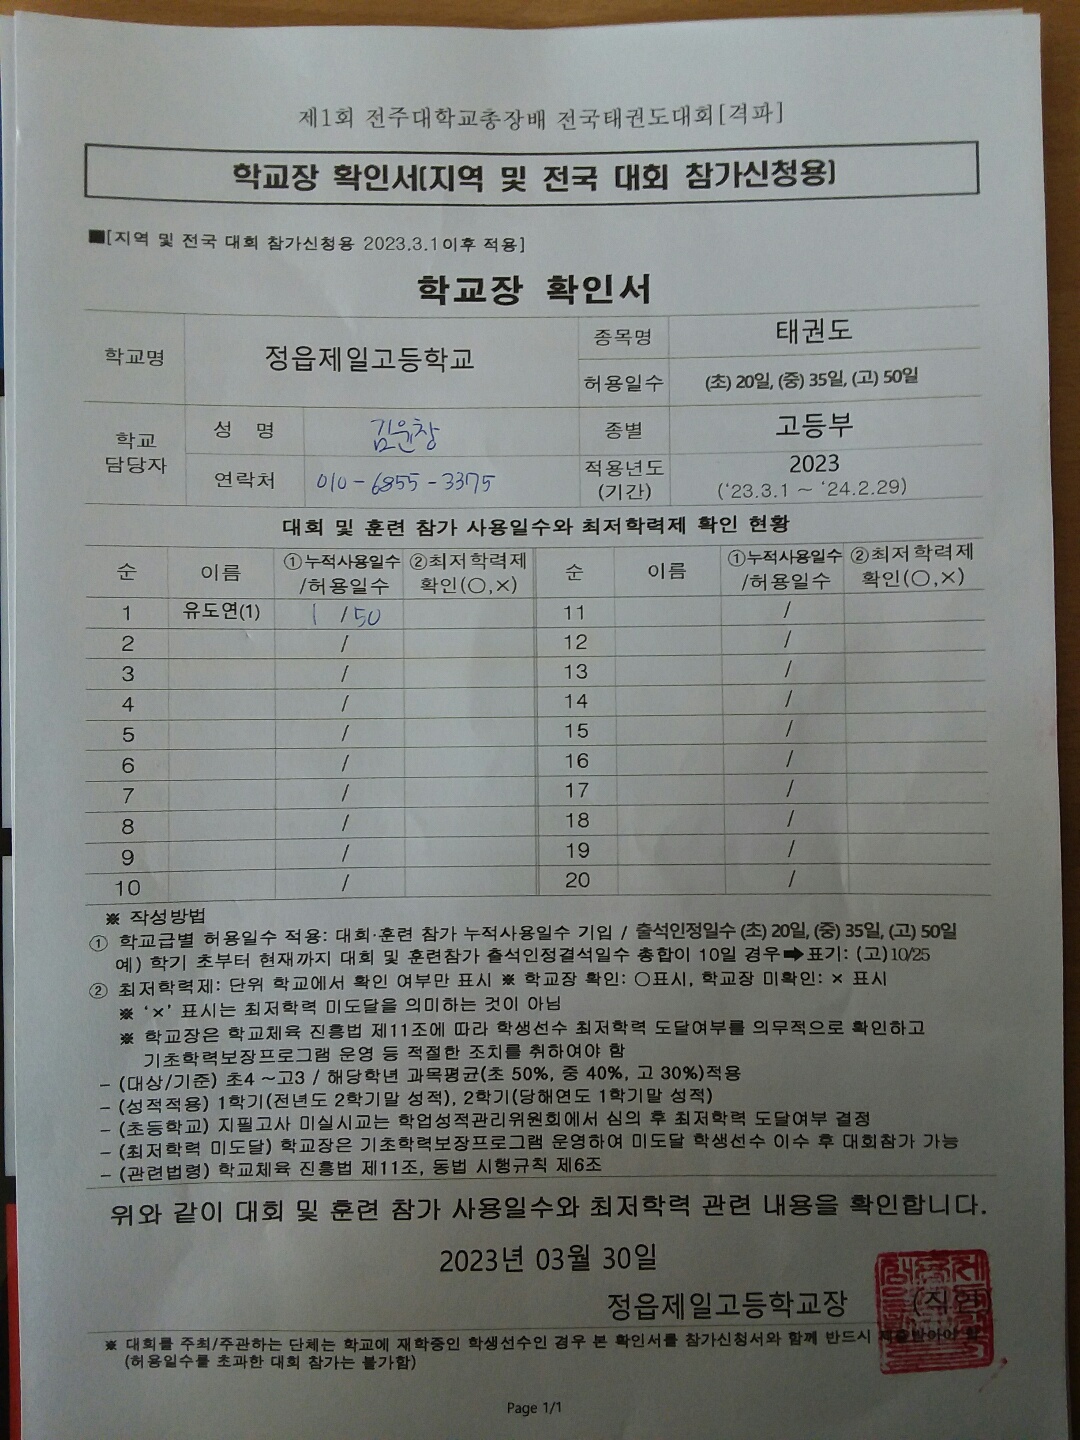 제1회 전주대학교총장배 전국태권도대회[격파]
학교장 확인서(지역 및 전국 대회 참가신청용)
■[지역 및 전국 대회 참가신청용 2023.3.1이후 적용]
학교장 확인서
학교명 정읍제일고등학교 종목명 태권도
허용일수 (초) 20일, (중) 35일, (고) 50일
학교 담당자 성 명 김윤창 종별 고등부
연락처 010-6855-3375 적용년도 (기간) 2023 ('23.3.1 ~ '24.2.29)
대회 및 훈련 참가 사용일수와 최저학력제 확인 현황
순 이름 ①누적사용일수 /허용일수 ②최저학력제 확인(○,×) 순 이름 ①누적사용일수 /허용일수 ②최저학력제 확인(○,×)
1 유도연(1) 1 /50 11 /
2 / 12 /
3 / 13 /
4 / 14 /
5 / 15 /
6 / 16 /
7 / 17 /
8 / 18 /
9 / 19 /
10 / 20 /
※ 작성방법
① 학교급별 허용일수 적용: 대회·훈련 참가 누적사용일수 기입 / 출석인정일수 (초) 20일, (중) 35일, (고) 50일
예) 학기 초부터 현재까지 대회 및 훈련참가 출석인정결석일수 총합이 10일 경우➡표기: (고)10/25
② 최저학력제: 단위 학교에서 확인 여부만 표시 ※ 학교장 확인: ○표시, 학교장 미확인: × 표시
※ '×' 표시는 최저학력 미도달을 의미하는 것이 아님
※ 학교장은 학교체육 진흥법 제11조에 따라 학생선수 최저학력 도달여부를 의무적으로 확인하고
기초학력보장프로그램 운영 등 적절한 조치를 취하여야 함
- (대상/기준) 초4 ~고3 / 해당학년 과목평균(초 50%, 중 40%, 고 30%)적용
- (성적적용) 1학기(전년도 2학기말 성적), 2학기(당해연도 1학기말 성적)
- (초등학교) 지필고사 미실시교는 학업성적관리위원회에서 심의 후 최저학력 도달여부 결정
- (최저학력 미도달) 학교장은 기초학력보장프로그램 운영하여 미도달 학생선수 이수 후 대회참가 가능
- (관련법령) 학교체육 진흥법 제11조, 동법 시행규칙 제6조
위와 같이 대회 및 훈련 참가 사용일수와 최저학력 관련 내용을 확인합니다.
2023년 03월 30일
정읍제일고등학교장 (직인)
※ 대회를 주최/주관하는 단체는 학교에 재학중인 학생선수인 경우 본 확인서를 참가신청서와 함께 반드시 제출받아야 함
(허용일수를 초과한 대회 참가는 불가함)
Page 1/1